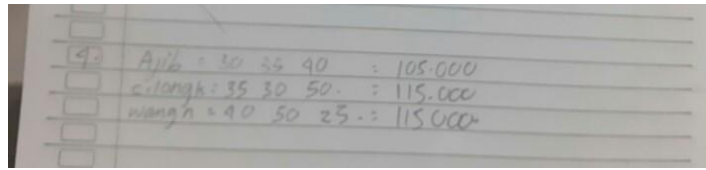 4. Ajib = 30 35 40 = 105.000
cilongk : 35 30 50. = 115.000
wang'n = 40 50 25 . = 115000